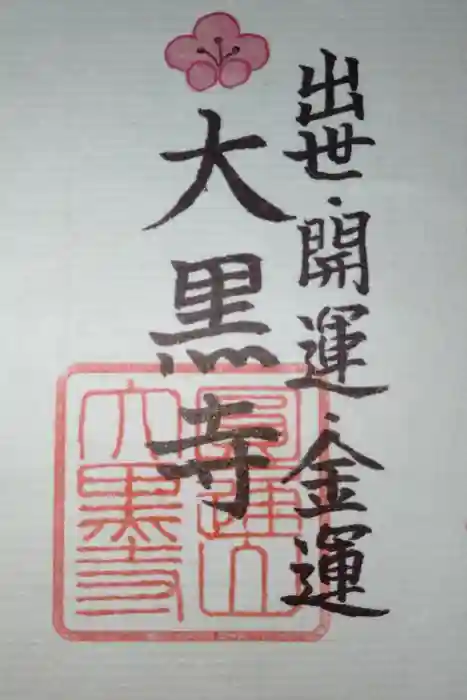 出世・開運・金運
大黒寺
圓通山
大黒寺